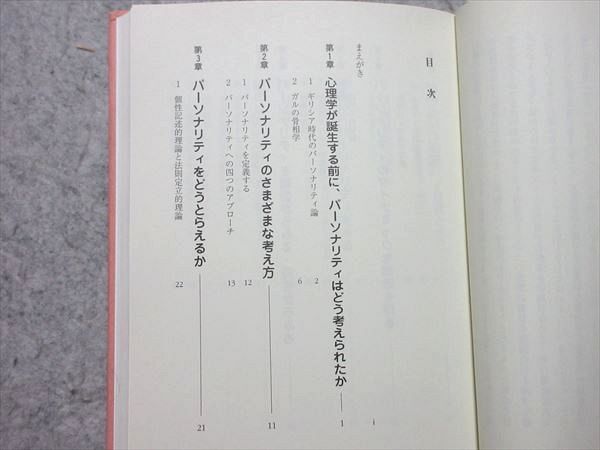 目次
まえがき i
第1章 心理学が誕生する前に、パーソナリティはどう考えられたか 1
1 ギリシア時代のパーソナリティ論 2
2 ガルの骨相学 6
第2章 パーソナリティのさまざまな考え方 11
1 パーソナリティを定義する 12
2 パーソナリティへの四つのアプローチ 13
第3章 パーソナリティをどうとらえるか 21
1 個性記述的理論と法則定立的理論 22